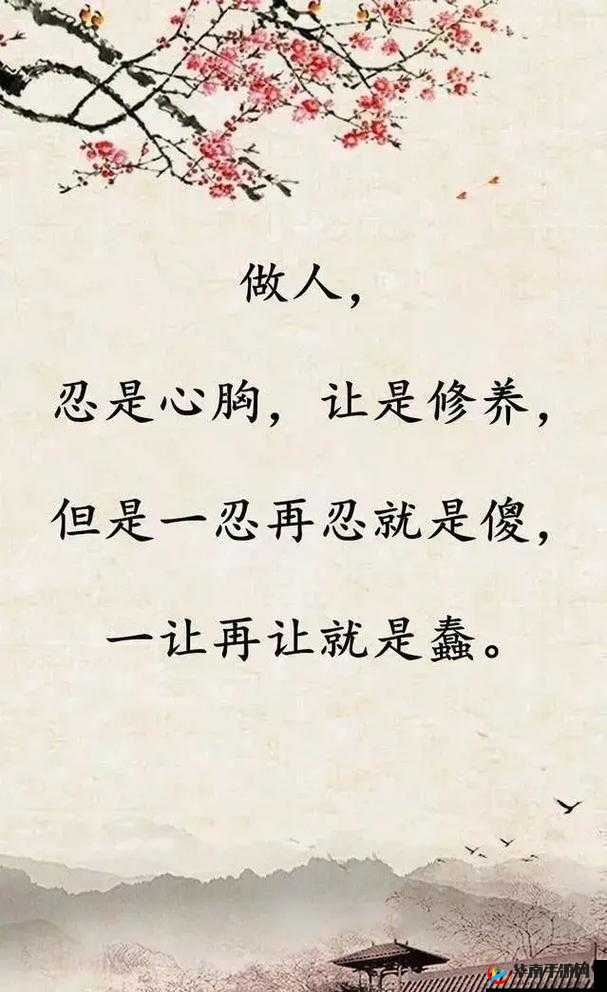 做人，
忍是心胸，让是修养，
但是一忍再忍就是傻，
一让再让就是蠢。